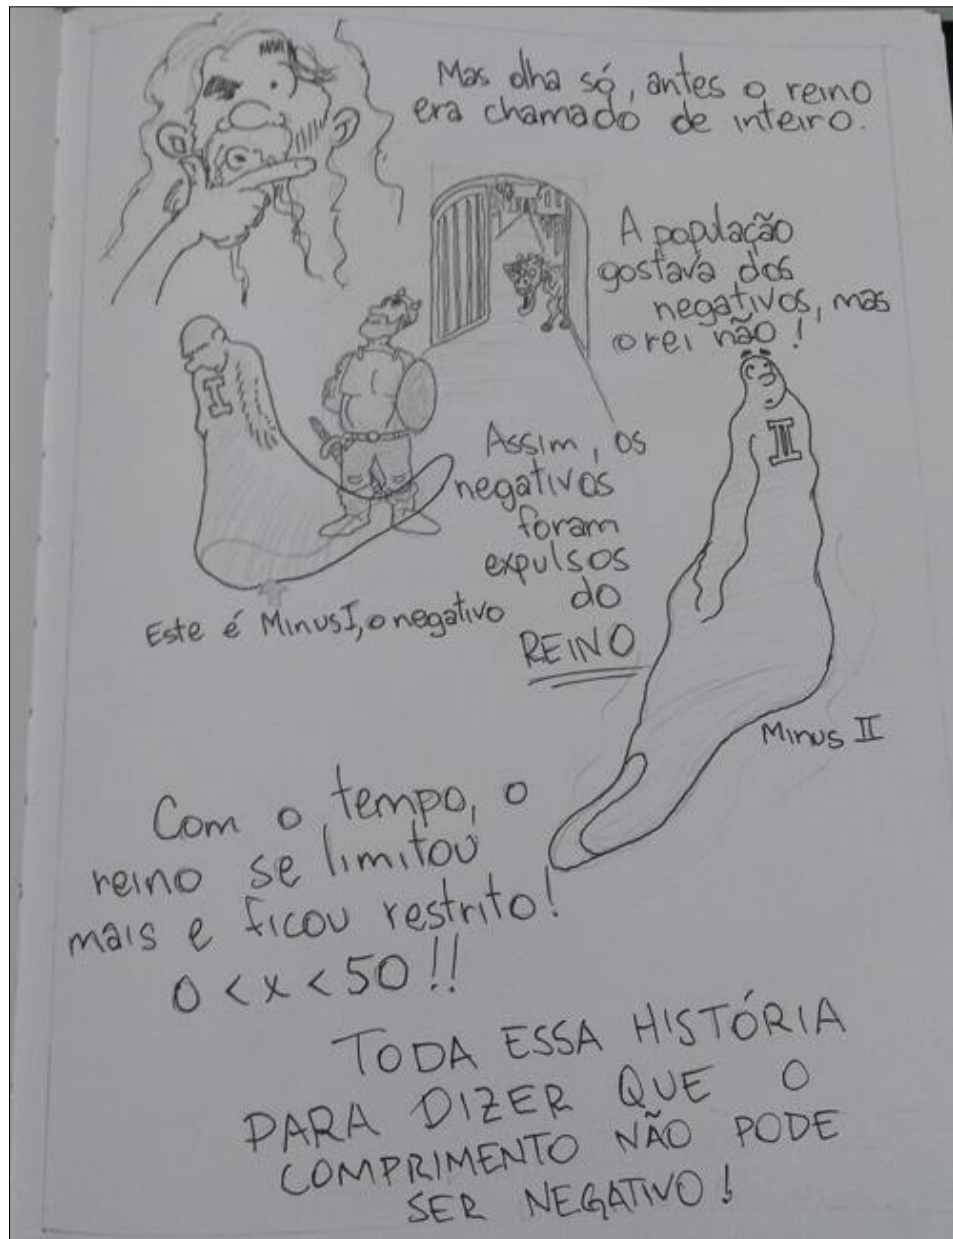 Mas olha só, antes o reino
era chamado de inteiro.
A população
gostava dos
negativos, mas
o rei não!
I
II
Assim, os
negativos
foram
expulsos
do
REINO
Este é Minus I, o negativo
Minus II
Com o tempo, o
reino se limitou
mais e ficou restrito!
0 < x < 50!!
TODA ESSA HISTÓRIA
PARA DIZER QUE O
COMPRIMENTO NÃO PODE
SER NEGATIVO!